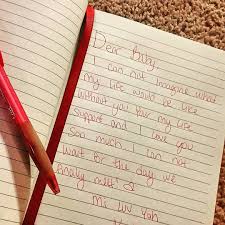 Dear Baby,
I can not Imagine what
my life would be like
without you your my life
support and I love you
Soo much. I can not
wait for the day we
finally meet
Mi luv Yah